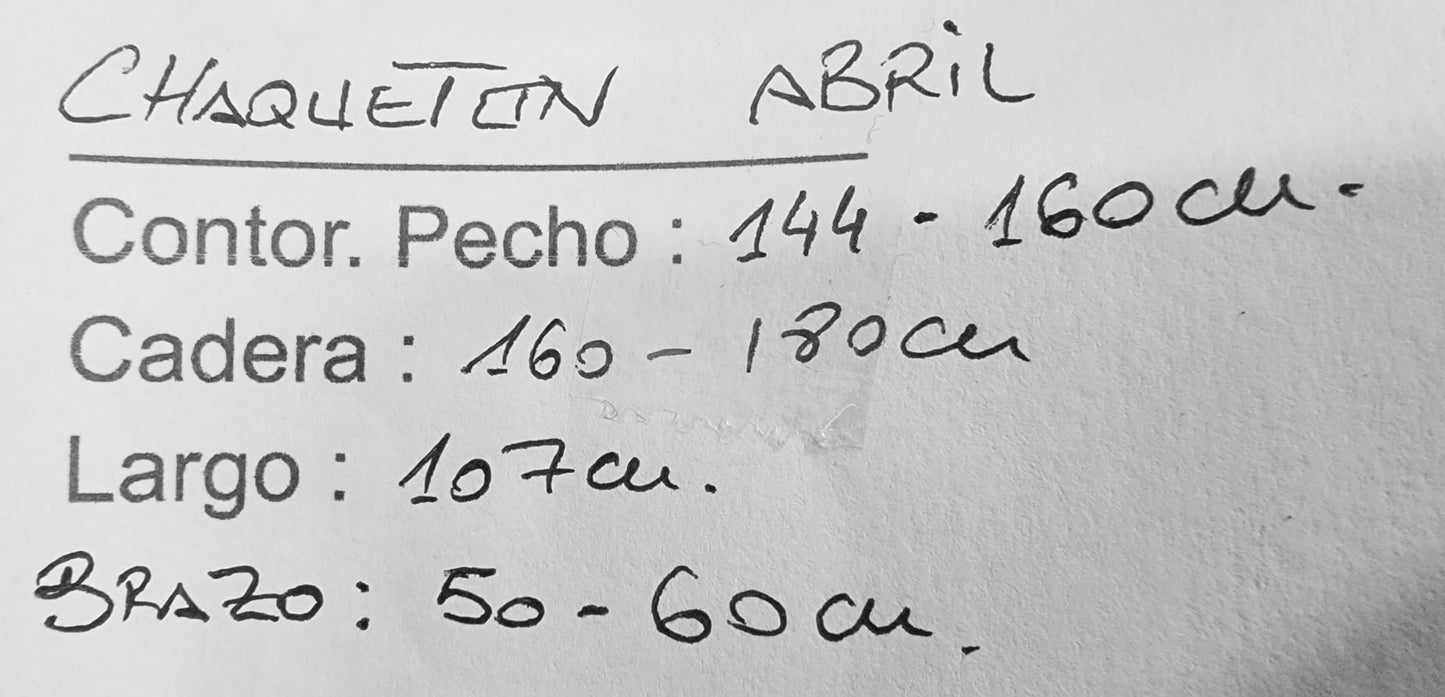 CHAQUETON ABRIL
Contor. Pecho : 144 - 160 cm.
Cadera : 160 - 180 cm
Largo : 107 cm.
BRAZO : 50 - 60 cm.